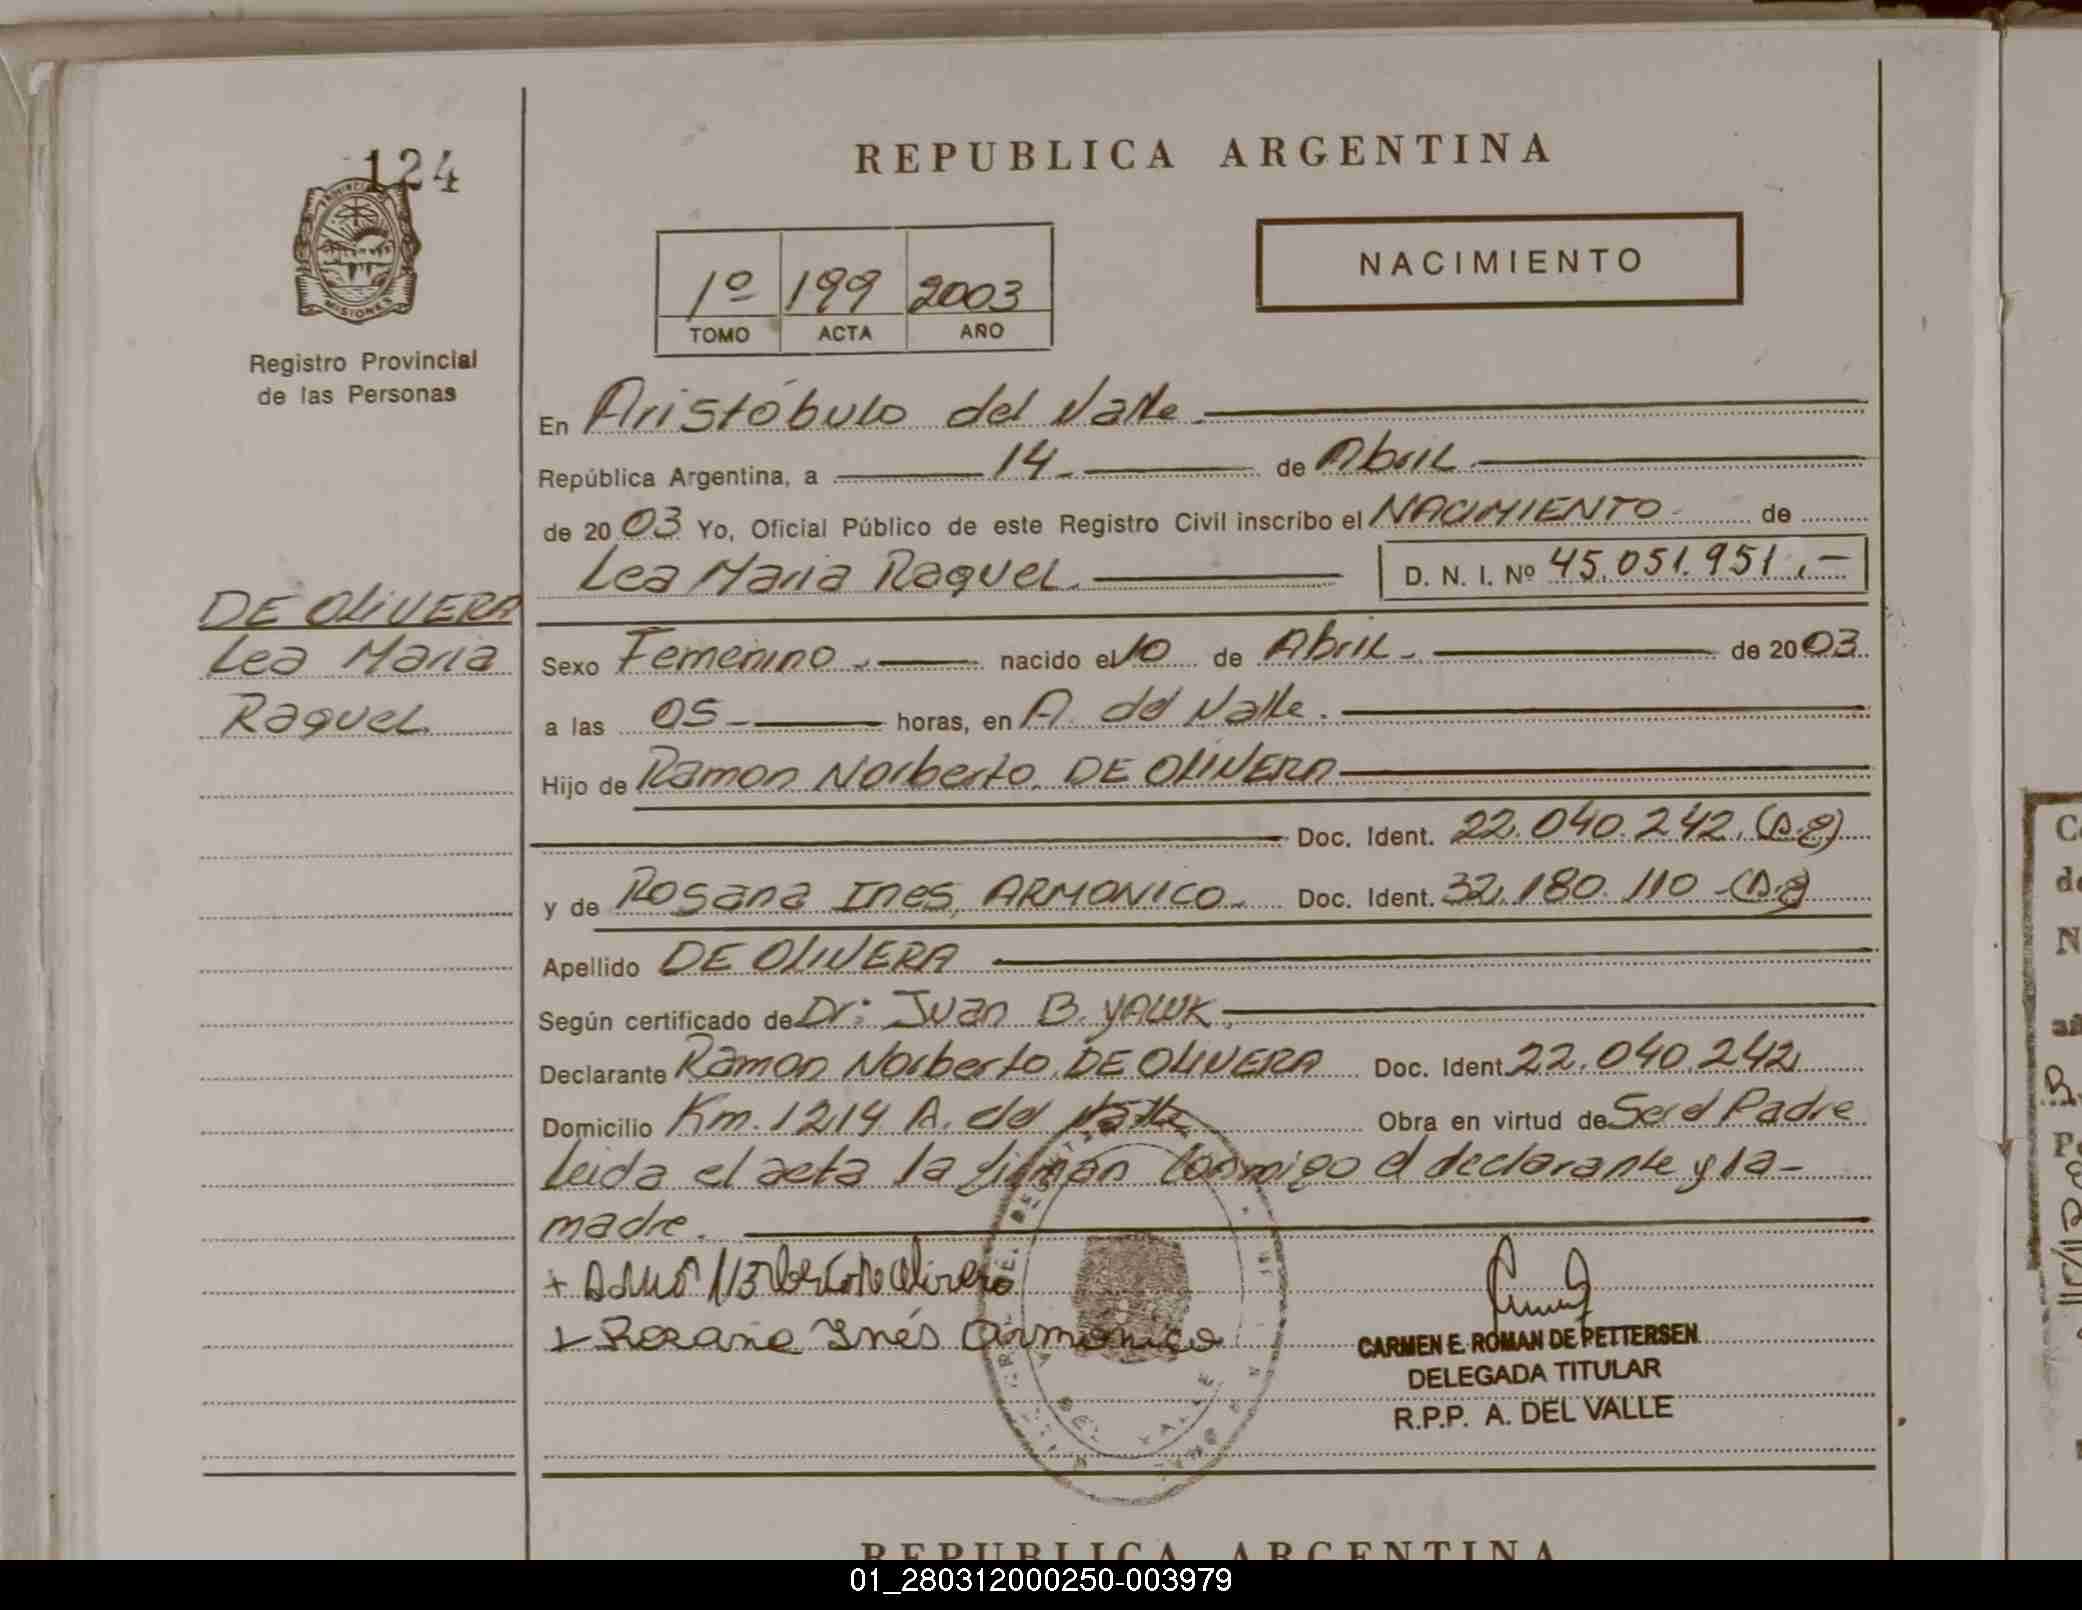 124
REPUBLICA ARGENTINA
PROVINCIA
MISIONES
Registro Provincial
de las Personas
1º 199 2003
TOMO ACTA AÑO
NACIMIENTO
En Aristóbulo del Valle.
República Argentina, a 14 de Abril
de 2003 Yo, Oficial Público de este Registro Civil inscribo el NACIMIENTO de
Lea Maria Raquel. D. N. I. Nº 45.051.951.-
DE OLIVERA
Lea Maria
Raquel
Sexo Femenino. nacido el 10 de Abril. de 2003
a las 05 horas, en A. del Valle.
Hijo de Ramon Norberto DE OLIVERA
Doc. Ident. 22.040.242
y de Rosana Ines ARMONICO Doc. Ident. 32.180.110
Apellido DE OLIVERA
Según certificado de Dr: Juan B. YAWK
Declarante Ramon Norberto DE OLIVERA Doc. Ident. 22.040.242
Domicilio Km. 1214 A. del Valle Obra en virtud de Ser el Padre
Leida el acta la firman conmigo el declarante y la
madre.
Rosana Inés Armonico
CARMEN E. ROMAN DE PETTERSEN
DELEGADA TITULAR
R.P.P. A. DEL VALLE
DEL VALLE
REPUBLICA ARGENTINA
01_280312000250-003979